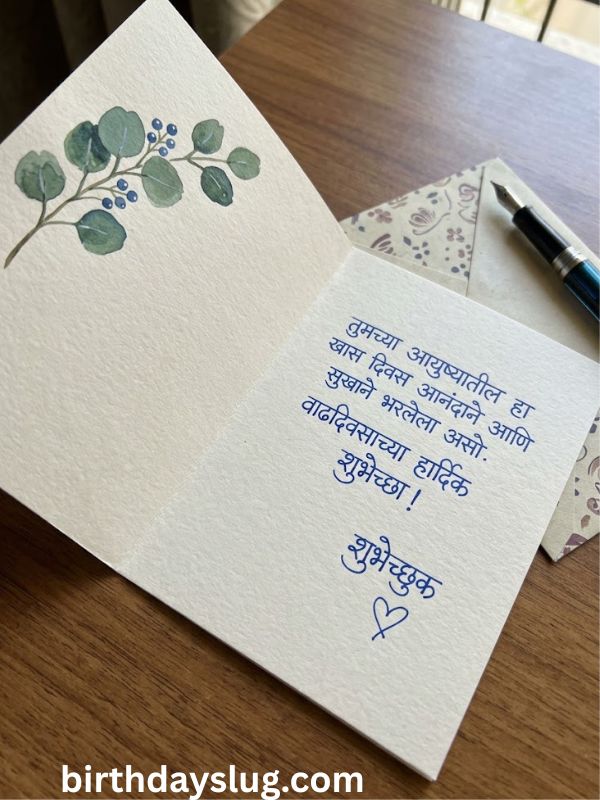 तुमच्या आयुष्यातील हा
खास दिवस आनंदाने आणि
सुखाने भरलेला असो.
वाढदिवसाच्या हार्दिक
शुभेच्छा!
शुभेच्छुक
birthdayslug.com